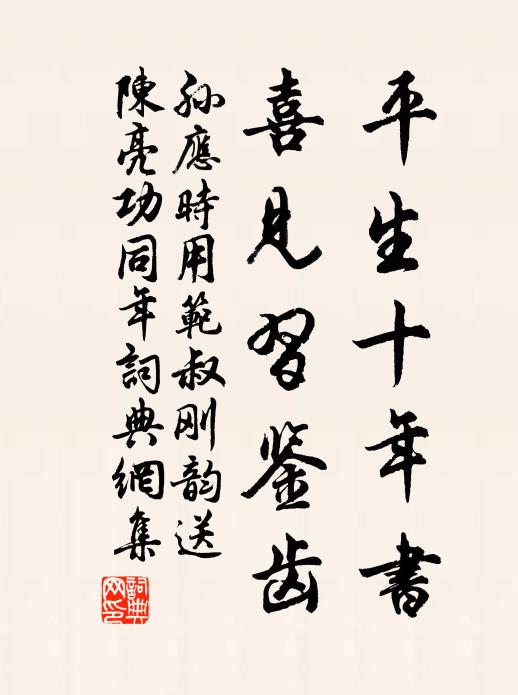 平生十年書
喜見習鉴齿
孙應時用範叔刚韵送
陳亮功同年詞典網集
詞典
网印